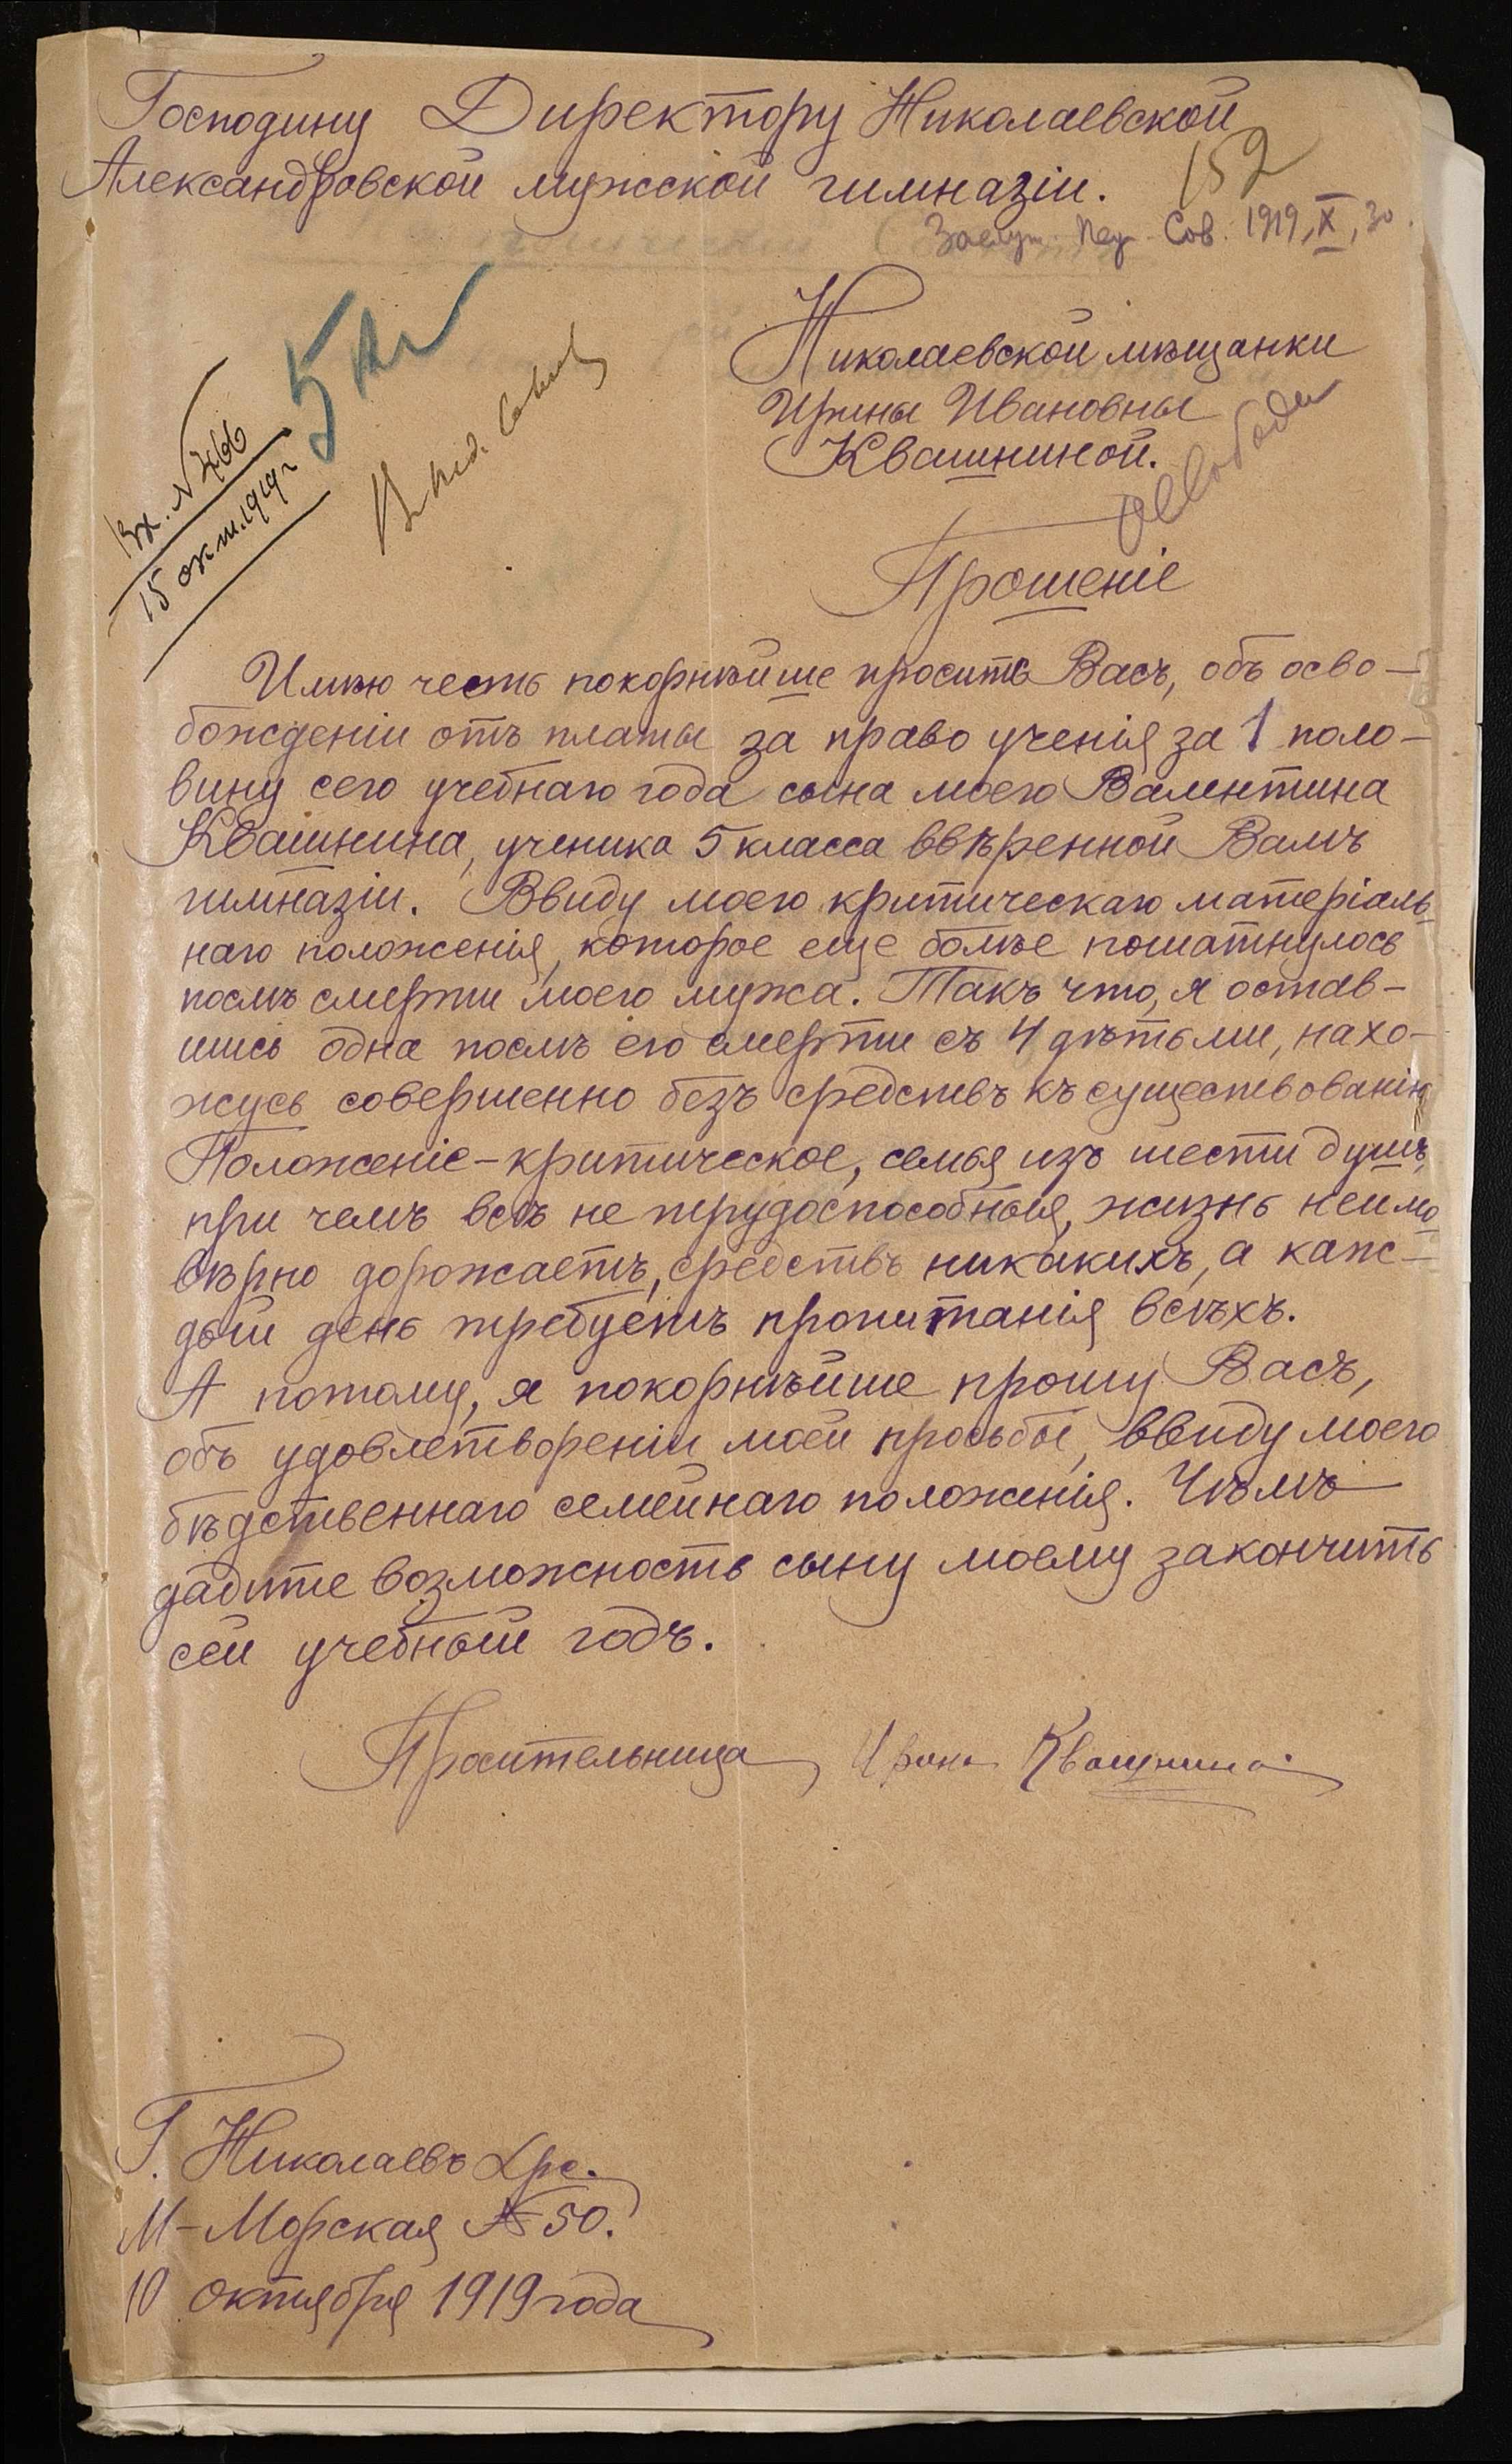 Господину Директору Николаевской
Александровской мужской гимназіи.
152
Заслуш. Пед. Сов. 1919, X, 30.
5 кл
Вх. № 466
15 окт. 1919 г
В пед. Совет
Николаевской мѣщанки
Ирины Ивановны
Квашниной.
Прошеніе
Имѣю честь покорнѣйше просить Васъ, объ осво-
божденіи отъ платы за право ученія за 1 поло-
вину сего учебнаго года сына моего Валентина
Квашнина, ученика 5 класса ввѣренной Вамъ
гимназіи. Ввиду моего критическаго матеріаль-
наго положенія, которое еще болѣе пошатнулось
послѣ смерти моего мужа. Такъ что, я остав-
шись одна послѣ его смерти съ 4 дѣтьми, нахо-
жусь совершенно безъ средствъ къ существованію
Положеніе-критическое, семья изъ шести душъ,
при чемъ всѣ не трудоспособныя, жизнь неимо-
вѣрно дорожаетъ, средствъ никакихъ, а каж-
дый день требуетъ пропитанія всѣхъ.
А потому, я покорнѣйше прошу Васъ,
объ удовлетвореніи моей просьбы, ввиду моего
бѣдственнаго семейнаго положенія. Чѣмъ
дадите возможность сыну моему закончить
сей учебный годъ.
Просительница Ирина Квашнина
Г. Николаевъ Хрс.
М-Морская № 50.
10 Октября 1919 года